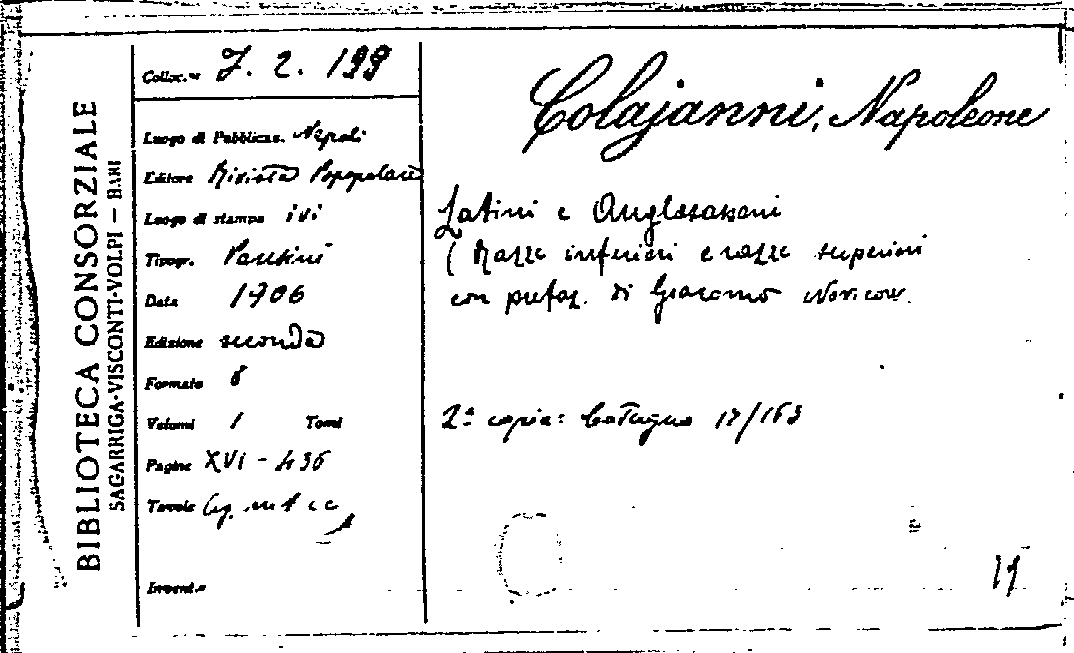 BIBLIOTECA CONSORZIALE
SAGARRIGA-VISCONTI-VOLPI — BARI
Colloc.ne 7. 2. 199
Luogo di Pubblicaz. Napoli
Editore Rivista Popopolare
Luogo di stampa ivi
Tipogr. Pansini
Data 1906
Edizione seconda
Formato 8
Volumi 1 Tomi
Pagine XVI - 436
Tavole Leg. m t
Invent.o
Colajanni, Napoleone
Latini e Anglosassoni
( Razze inferiori e razze superiori
con prefaz. di Giacomo Novicow.
2ª copia: Cotugno 17/163